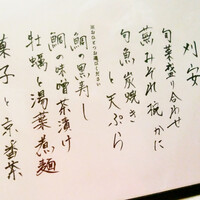 刈安
旬菜盛り合わせ
蕪みぞれ椀かに
旬魚炭焼き
と天ぷら
※おひとつお選びください
鯛の黒寿し
鯛の味噌茶漬け
牡蠣と湯葉煮麺
菓子と京番茶